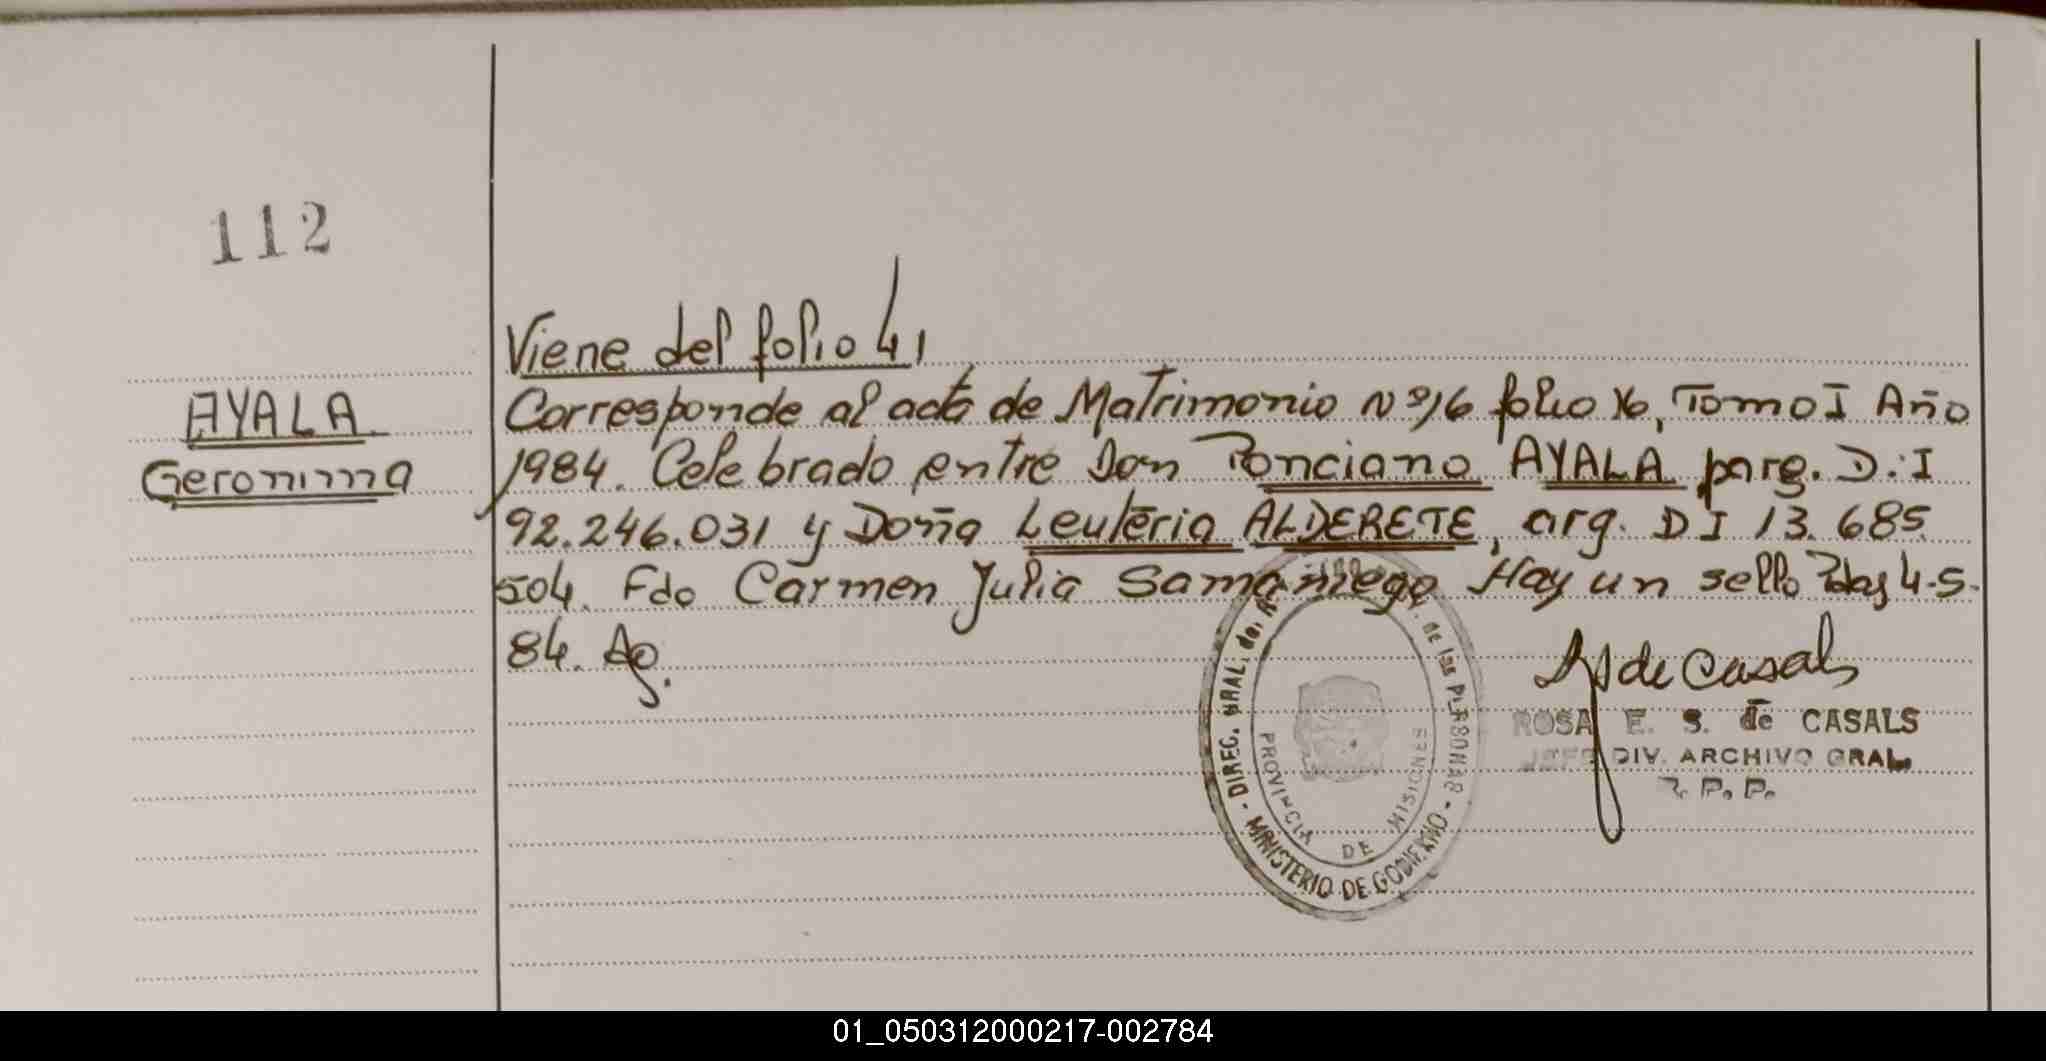 112
Viene del folio 41
AYALA
Geronima
Corresponde al acta de Matrimonio Nº 16 folio 16, Tomo I Año
1984. Celebrado entre Don Ponciano AYALA parg. D.I
92.246.031 y Doña Leuteria ALDERETE, arg. DI 13.685.
504. Fdo Carmen Julia Samaniego Hay un sello Pdas 4-5-
84.
de Casals
ROSA E. S. de CASALS
JEFE DIV. ARCHIVO GRAL.
R. P. P.
DIREC. GRAL. de las PERSONAS
PROVINCIA DE MISIONES
- MINISTERIO DE GOBIERNO -
01_050312000217-002784